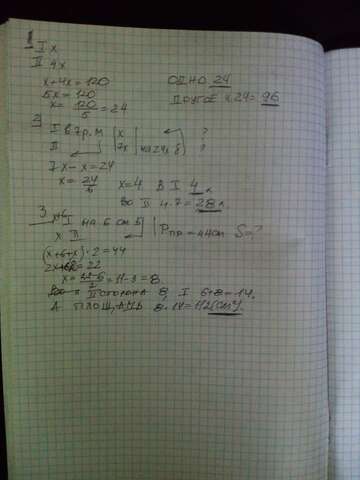 1 I x
II 4x
x+4x=120 ОДНО 24
5x=120 ДРУГОЕ 4.24=96
x=120/5=24
2 I в 7 р. М | x ?
II | 7x | на 24 к б ?
7x-x=24
x=24/6 x=4 В I 4 к
Во II 4.7=28 к.
3 x+6 I на 6 см б | Pпр=44см S=?
x II
(x+6+x).2=44
2x+6=22
x= =11-3=8
II сторона 8, I 6+8=14.
А ПЛОЩАДЬ 8.14=112(см²).